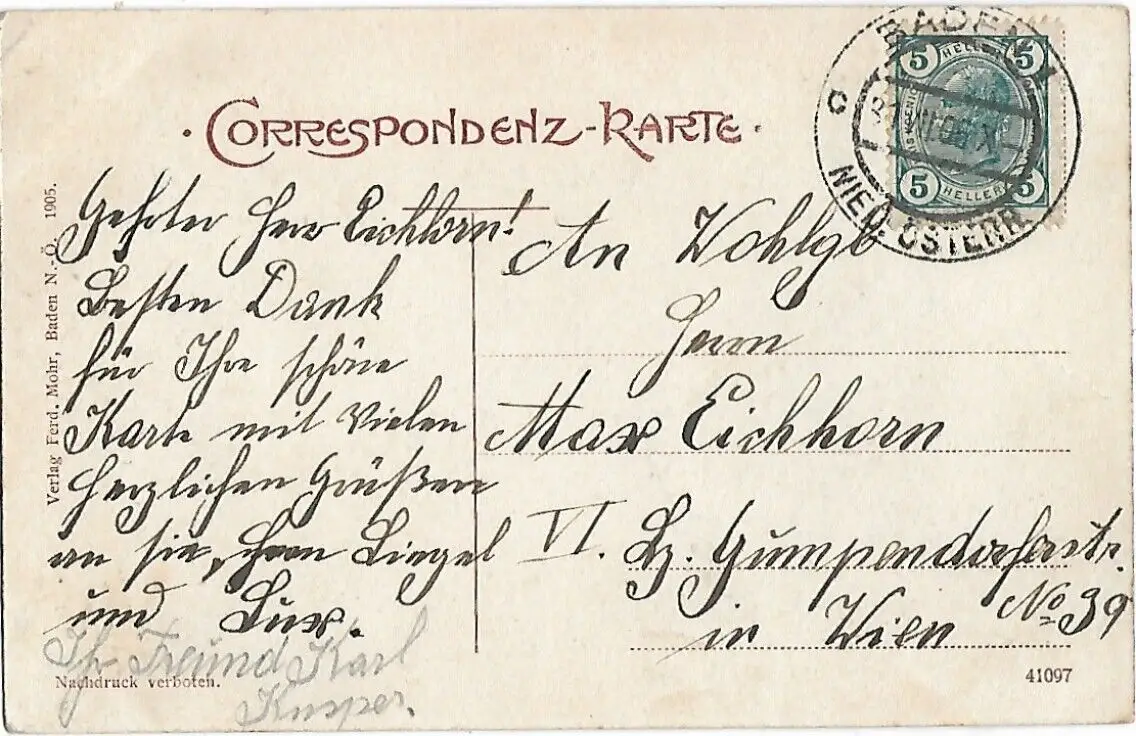 · CORRESPONDENZ-KARTE ·
BADEN 1
NIED. ÖSTERR
5 HELLER 5
5 HELLER 5
Geehrter Herr Eichhorn!
Besten Dank
für Ihre schöne
Karte mit vielen
herzlichen Grüßen
an sie, Herrn
und Lux.
Ihr Freund Karl
An Wohlgb
Herrn
Max Eichhorn
VI. Bz. Gumpendorferstr.
No 39
in Wien
Verlag Ferd. Mohr, Baden N.-Ö. 1905.
Nachdruck verboten.
41097